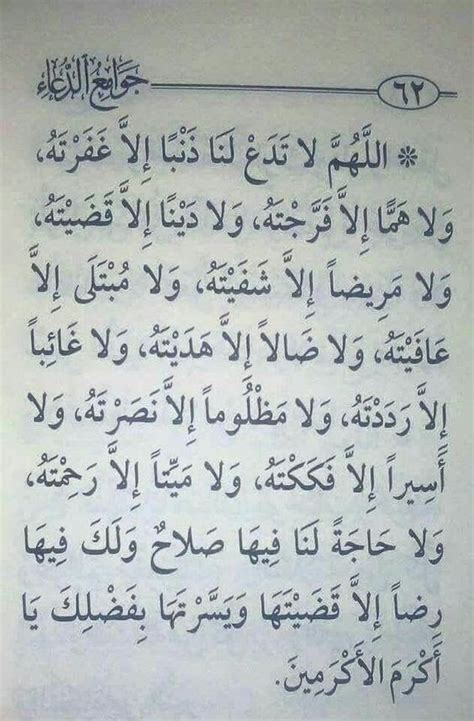 جَوَامِعُ الدُّعَاءِ ٦٢
* اللَّهُمَّ لا تَدَعْ لَنَا ذَنْبًا إِلاَّ غَفَرْتَهُ،
وَلا هَمًّا إِلاَّ فَرَّجْتَهُ، وَلا دَيْنًا إِلاَّ قَضَيْتَهُ،
وَلا مَرِيضاً إِلاَّ شَفَيْتَهُ، وَلا مُبْتَلَى إِلاَّ
عَافَيْتَهُ، وَلا ضَالاً إِلاَّ هَدَيْتَهُ، وَلا غَائِباً
إِلاَّ رَدَدْتَهُ، وَلا مَظْلُوماً إِلاَّ نَصَرْتَهُ، وَلا
أَسِيراً إِلاَّ فَكَكْتَهُ، وَلا مَيِّتاً إِلاَّ رَحِمْتَهُ،
وَلا حَاجَةً لَنَا فِيهَا صَلاحٌ وَلَكَ فِيهَا
رِضاً إِلاَّ قَضَيْتَهَا وَيَسَّرْتَهَا بِفَضْلِكَ يَا
أَكْرَمَ الأَكْرَمِينَ.